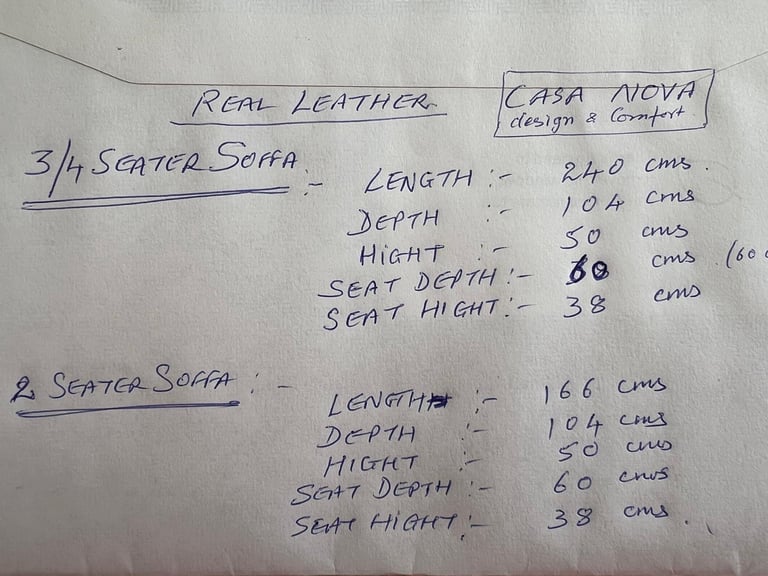 REAL LEATHER
CASA NOVA
design & Comfort
3/4 SEATER SOFFA :-
LENGTH :- 240 cms.
DEPTH :- 104 cms
HIGHT :- 50 cms
SEAT DEPTH :- 60 cms. (60 c
SEAT HIGHT :- 38 cms
2 SEATER SOFFA :-
LENGTH :- 166 cms
DEPTH :- 104 cms
HIGHT :- 50 cms
SEAT DEPTH :- 60 cms
SEAT HIGHT :- 38 cms.